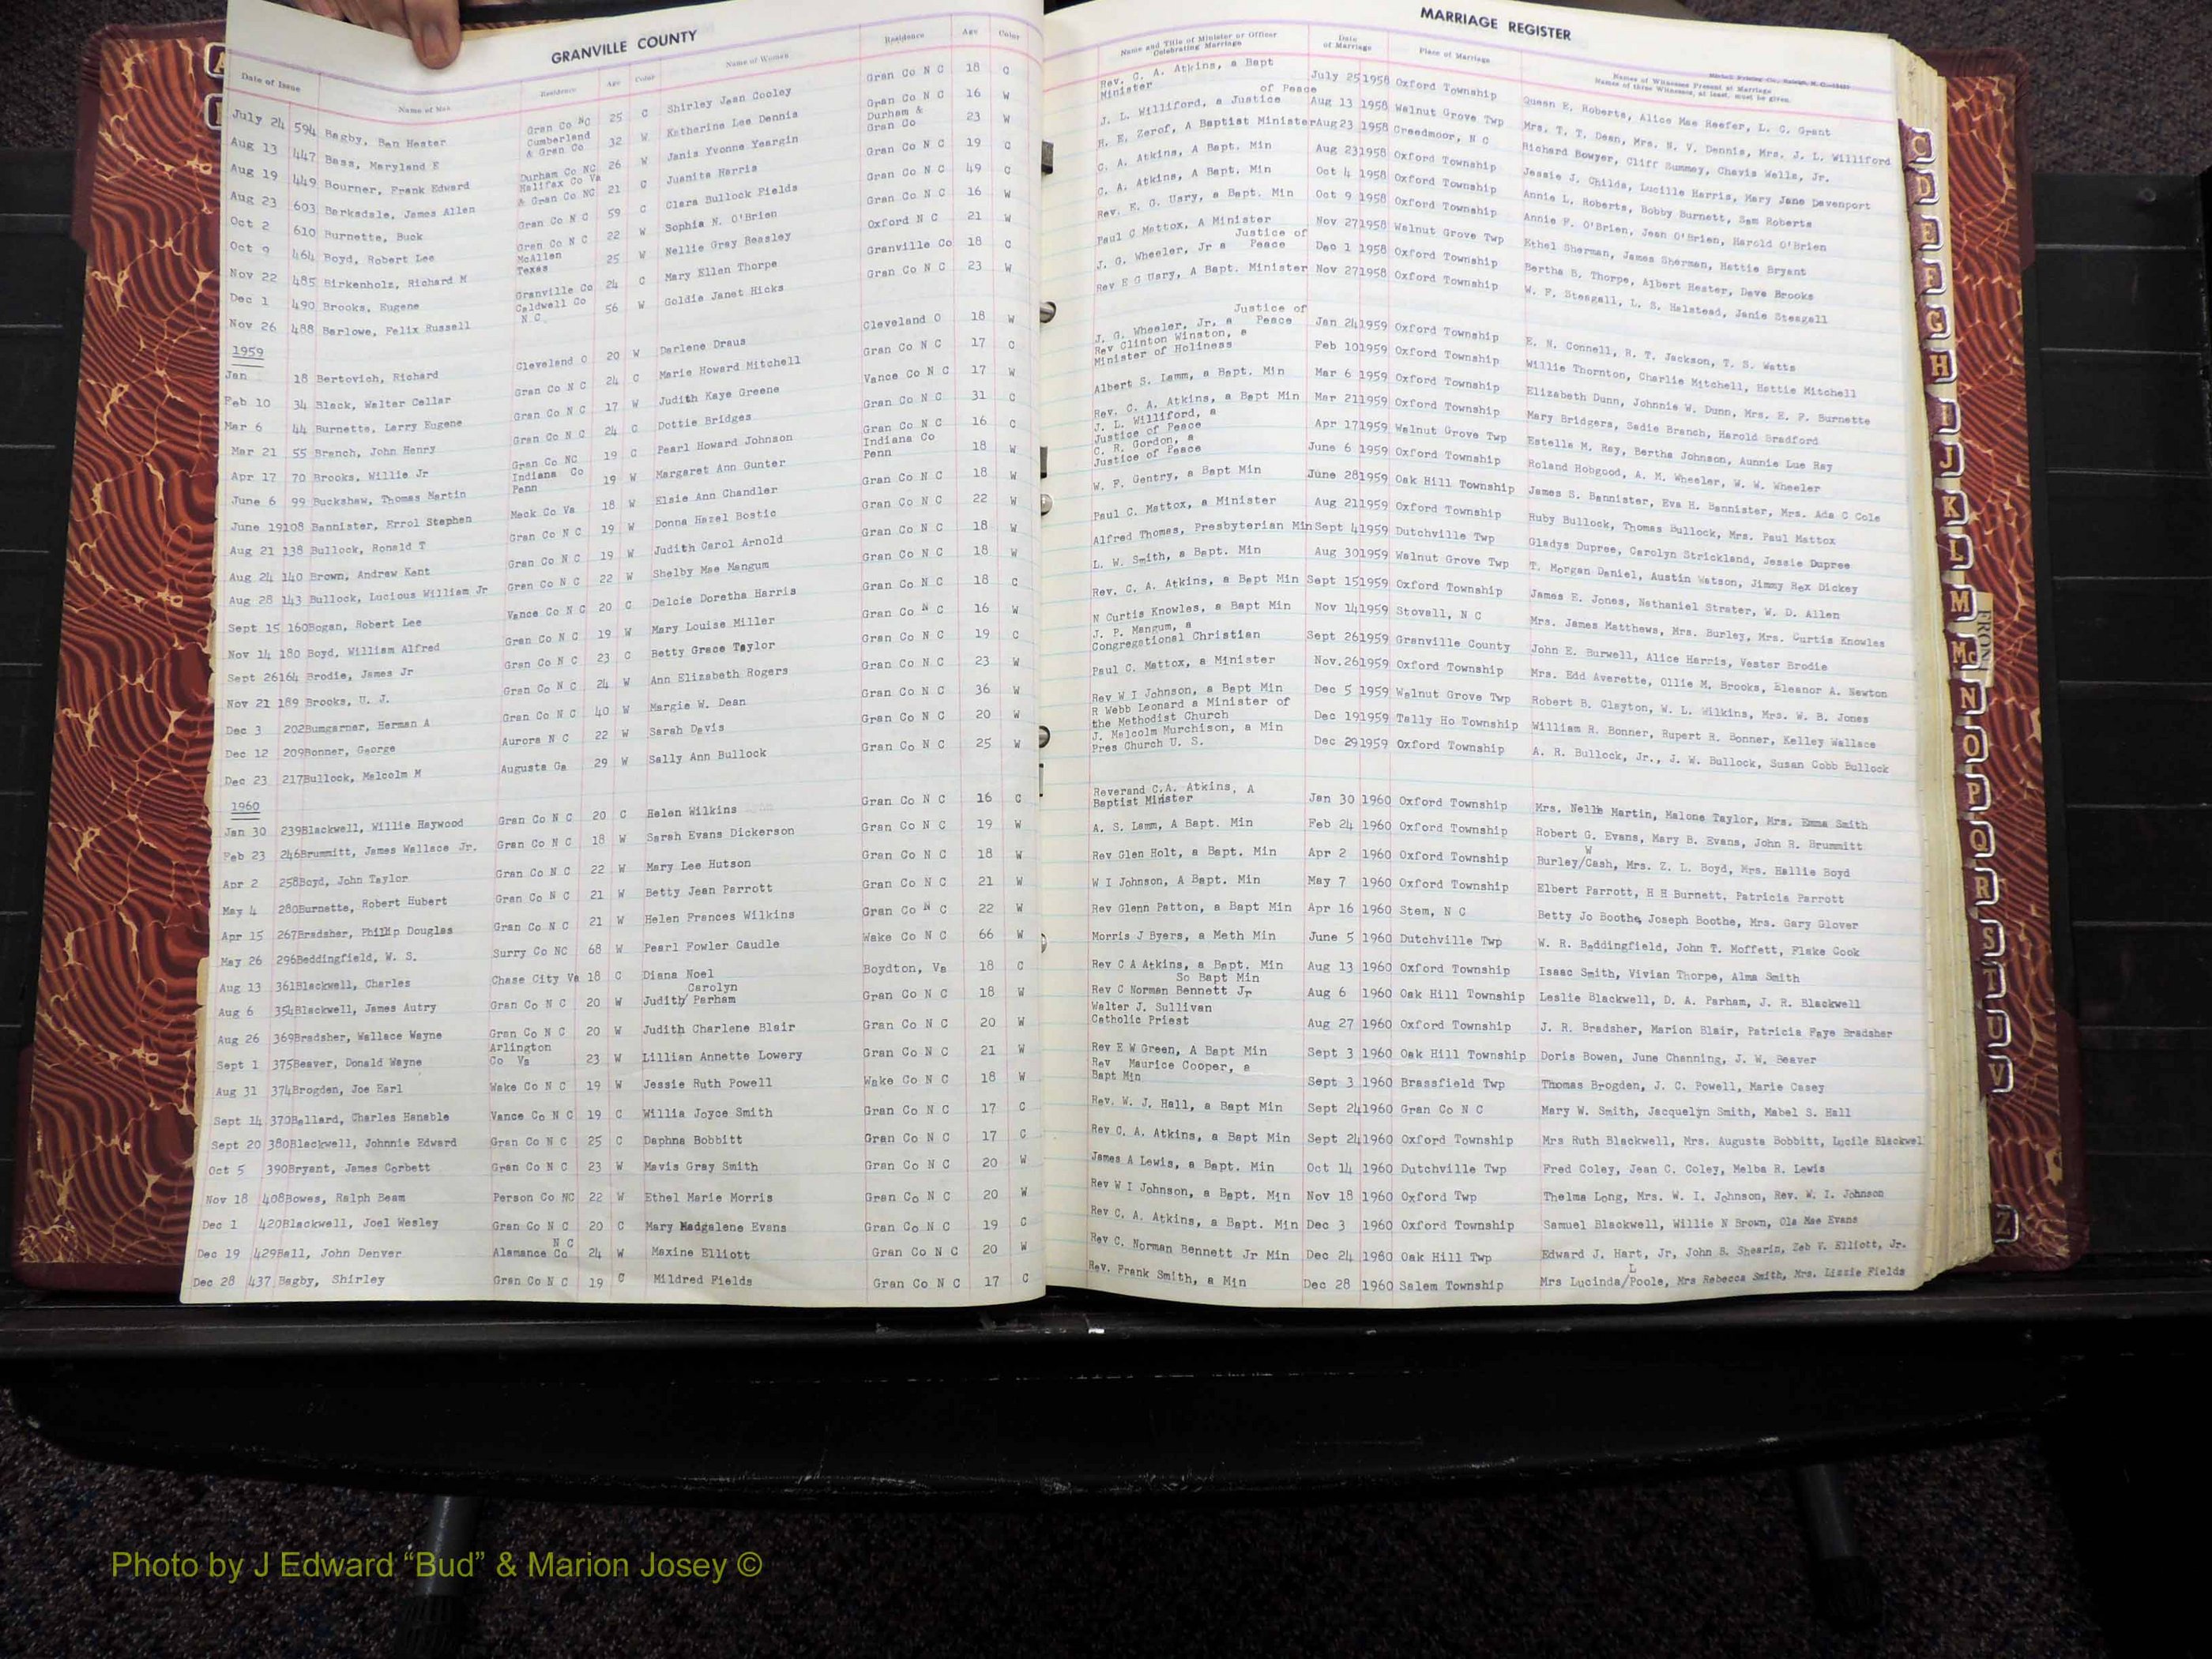 GRANVILLE COUNTY
MARRIAGE REGISTER
Date of Issue Name of Man Residence Age Color Name of Women Residence Age Color
Name and Title of Minister or Officer Celebrating Marriage Date of Marriage Place of Marriage Names of Witnesses Present at Marriage
Names of three Witnesses, at least, must be given.
July 24 594 Bagby, Ben Hester Gran Co NC 25 C Shirley Jean Cooley Gran Co N C 18 C Rev. C. A. Atkins, a Bapt Minister July 25 1958 Oxford Township Queen E. Roberts, Alice Mae Reefer, L. C. Grant
Aug 13 447 Bass, Maryland E Cumberland & Gran Co 32 W Katherine Lee Dennis Gran Co N C 16 W J. L. Williford, a Justice of Peace Aug 13 1958 Walnut Grove Twp Mrs. T. T. Dean, Mrs. N. V. Dennis, Mrs. J. L. Williford
Aug 19 449 Bourner, Frank Edward Durham Co NC 26 W Janis Yvonne Yeargin Durham & Gran Co 23 W H. E. Zerof, A Baptist Minister Aug 23 1958 Creedmoor, N C Richard Bowyer, Cliff Summey, Chavis Wells, Jr.
Aug 23 603 Barksdale, James Allen Halifax Co Va & Gran Co NC 21 C Juanita Harris Gran Co N C 19 C C. A. Atkins, A Bapt. Min Aug 23 1958 Oxford Township Jessie J. Childs, Lucille Harris, Mary Jane Davenport
Oct 2 610 Burnette, Buck Gran Co N C 59 C Clara Bullock Fields Gran Co N C 49 C C. A. Atkins, A Bapt. Min Oct 4 1958 Oxford Township Annie L. Roberts, Bobby Burnett, Sam Roberts
Oct 9 464 Boyd, Robert Lee Gran Co N C 22 W Sophia N. O'Brien Gran Co N C 16 W Rev. E. G. Usry, a Bapt. Min Oct 9 1958 Oxford Township Annie F. O'Brien, Jean O'Brien, Harold O'Brien
Nov 22 485 Birkenholz, Richard M McAllen Texas 25 W Nellie Gray Beasley Oxford N C 21 W Paul C Mattox, A Minister Nov 27 1958 Walnut Grove Twp Ethel Sherman, James Sherman, Hattie Bryant
Dec 1 490 Brooks, Eugene Granville Co 24 C Mary Ellen Thorpe Granville Co 18 C J. G. Wheeler, Jr a Justice of Peace Dec 1 1958 Oxford Township Bertha B. Thorpe, Albert Hester, Dave Brooks
Nov 26 488 Barlowe, Felix Russell Caldwell Co N C 56 W Goldie Janet Hicks Gran Co N C 23 W Rev E G Usry, A Bapt. Minister Nov 27 1958 Oxford Township W. F. Steagall, L. S. Halstead, Janie Steagall
1959
Jan 18 Bertovich, Richard Cleveland O 20 W Darlene Draus Cleveland O 18 W J. G. Wheeler, Jr. a Justice of Peace Jan 24 1959 Oxford Township E. N. Connell, R. T. Jackson, T. S. Watts
Feb 10 34 Black, Walter Cellar Gran Co N C 24 C Marie Howard Mitchell Gran Co N C 17 C Rev Clinton Winston, a Minister of Holiness Feb 10 1959 Oxford Township Willie Thornton, Charlie Mitchell, Hattie Mitchell
Mar 6 44 Burnette, Larry Eugene Gran Co N C 17 W Judith Kaye Greene Vance Co N C 17 W Albert S. Lamm, a Bapt. Min Mar 6 1959 Oxford Township Elizabeth Dunn, Johnnie W. Dunn, Mrs. E. F. Burnette
Mar 21 55 Branch, John Henry Gran Co N C 24 C Dottie Bridges Gran Co N C 31 C Rev. C. A. Atkins, a Bapt Min Mar 21 1959 Oxford Township Mary Bridgers, Sadie Branch, Harold Bradford
Apr 17 70 Brooks, Willie Jr Gran Co NC 19 C Pearl Howard Johnson Gran Co N C 16 C J. L. Williford, a Justice of Peace Apr 17 1959 Walnut Grove Twp Estella M. Ray, Bertha Johnson, Aunnie Lue Ray
June 6 99 Buckshaw, Thomas Martin Indiana Co Penn 19 W Margaret Ann Gunter Indiana Co Penn 18 W C. R. Gordon, a Justice of Peace June 6 1959 Oxford Township Roland Hobgood, A. M. Wheeler, W. W. Wheeler
June 19 108 Bannister, Errol Stephen Meck Co Va 18 W Elsie Ann Chandler Gran Co N C 18 W W. F. Gentry, a Bapt Min June 28 1959 Oak Hill Township James S. Bannister, Eva H. Bannister, Mrs. Ada C Cole
Aug 21 138 Bullock, Ronald T Gran Co N C 19 W Donna Hazel Bostic Gran Co N C 22 W Paul C. Mattox, a Minister Aug 21 1959 Oxford Township Ruby Bullock, Thomas Bullock, Mrs. Paul Mattox
Aug 24 140 Brown, Andrew Kent Gran Co N C 19 W Judith Carol Arnold Gran Co N C 18 W Alfred Thomas, Presbyterian Min Sept 4 1959 Dutchville Twp Gladys Dupree, Carolyn Strickland, Jessie Dupree
Aug 28 143 Bullock, Lucious William Jr Gran Co N C 22 W Shelby Mae Mangum Gran Co N C 18 W L. W. Smith, a Bapt. Min Aug 30 1959 Walnut Grove Twp T. Morgan Daniel, Austin Watson, Jimmy Rex Dickey
Sept 15 160 Bogan, Robert Lee Vance Co N C 20 C Delcie Doretha Harris Gran Co N C 18 C Rev. C. A. Atkins, a Bapt Min Sept 15 1959 Oxford Township James E. Jones, Nathaniel Strater, W. D. Allen
Nov 14 180 Boyd, William Alfred Gran Co N C 19 W Mary Louise Miller Gran Co N C 16 W N Curtis Knowles, a Bapt Min Nov 14 1959 Stovall, N C Mrs. James Matthews, Mrs. Burley, Mrs. Curtis Knowles
Sept 26 164 Brodie, James Jr Gran Co N C 23 C Betty Grace Taylor Gran Co N C 19 C J. P. Mangum, a Congregational Christian Sept 26 1959 Granville County John E. Burwell, Alice Harris, Vester Brodie
Nov 21 189 Brooks, U. J. Gran Co N C 24 W Ann Elizabeth Rogers Gran Co N C 23 W Paul C. Mattox, a Minister Nov. 26 1959 Oxford Township Mrs. Edd Averette, Ollie M. Brooks, Eleanor A. Newton
Dec 3 202 Bumgarner, Herman A Gran Co N C 40 W Margie W. Dean Gran Co N C 36 W Rev W I Johnson, a Bapt Min Dec 5 1959 Walnut Grove Twp Robert B. Clayton, W. L. Wilkins, Mrs. W. B. Jones
Dec 12 209 Bonner, George Aurora N C 22 W Sarah Davis Gran Co N C 20 W R Webb Leonard a Minister of the Methodist Church Dec 19 1959 Tally Ho Township William R. Bonner, Rupert R. Bonner, Kelley Wallace
Dec 23 217 Bullock, Malcolm M Augusta Ga 29 W Sally Ann Bullock Gran Co N C 25 W J. Malcolm Murchison, a Min Pres Church U. S. Dec 29 1959 Oxford Township A. R. Bullock, Jr., J. W. Bullock, Susan Cobb Bullock
1960
Jan 30 239 Blackwell, Willie Haywood Gran Co N C 20 C Helen Wilkins Gran Co N C 16 C Reverand C.A. Atkins, A Baptist Minister Jan 30 1960 Oxford Township Mrs. Nelle Martin, Malone Taylor, Mrs. Emma Smith
Feb 23 246 Brummitt, James Wallace Jr. Gran Co N C 18 W Sarah Evans Dickerson Gran Co N C 19 W A. S. Lamm, A Bapt. Min Feb 24 1960 Oxford Township Robert G. Evans, Mary B. Evans, John R. Brummitt
Apr 2 258 Boyd, John Taylor Gran Co N C 22 W Mary Lee Hutson Gran Co N C 18 W Rev Glen Holt, a Bapt. Min Apr 2 1960 Oxford Township Burley/W Cash, Mrs. Z. L. Boyd, Mrs. Hallie Boyd
May 4 280 Burnette, Robert Hubert Gran Co N C 21 W Betty Jean Parrott Gran Co N C 21 W W I Johnson, A Bapt. Min May 7 1960 Oxford Township Elbert Parrott, H H Burnett, Patricia Parrott
Apr 15 267 Bradsher, Phillip Douglas Gran Co N C 21 W Helen Frances Wilkins Gran Co N C 22 W Rev Glenn Patton, a Bapt Min Apr 16 1960 Stem, N C Betty Jo Boothe, Joseph Boothe, Mrs. Gary Glover
May 26 296 Beddingfield, W. S. Surry Co NC 68 W Pearl Fowler Caudle Wake Co N C 66 W Morris J Byers, a Meth Min June 5 1960 Dutchville Twp W. R. Beddingfield, John T. Moffett, Flake Cook
Aug 13 361 Blackwell, Charles Chase City Va 18 C Diana Noel Boydton, Va 18 C Rev C A Atkins, a Bapt. Min Aug 13 1960 Oxford Township Isaac Smith, Vivian Thorpe, Alma Smith
Aug 6 354 Blackwell, James Autry Gran Co N C 20 W Judith/ Carolyn Parham Gran Co N C 18 W Rev C Norman Bennett Jr So Bapt Min Aug 6 1960 Oak Hill Township Leslie Blackwell, D. A. Parham, J. R. Blackwell
Aug 26 369 Bradsher, Wallace Wayne Gran Co N C 20 W Judith Charlene Blair Gran Co N C 20 W Walter J. Sullivan Catholic Priest Aug 27 1960 Oxford Township J. R. Bradsher, Marion Blair, Patricia Faye Bradsher
Sept 1 375 Beaver, Donald Wayne Arlington Co Va 23 W Lillian Annette Lowery Gran Co N C 21 W Rev E W Green, A Bapt Min Sept 3 1960 Oak Hill Township Doris Bowen, June Channing, J. W. Beaver
Aug 31 374 Brogden, Joe Earl Wake Co N C 19 W Jessie Ruth Powell Wake Co N C 18 W Rev Maurice Cooper, a Bapt Min Sept 3 1960 Brassfield Twp Thomas Brogden, J. C. Powell, Marie Casey
Sept 14 370 Ballard, Charles Henable Vance Co N C 19 C Willia Joyce Smith Gran Co N C 17 C Rev. W. J. Hall, a Bapt Min Sept 24 1960 Gran Co N C Mary W. Smith, Jacquelyn Smith, Mabel S. Hall
Sept 20 380 Blackwell, Johnnie Edward Gran Co N C 25 C Daphna Bobbitt Gran Co N C 17 C Rev C. A. Atkins, a Bapt Min Sept 24 1960 Oxford Township Mrs Ruth Blackwell, Mrs. Augusta Bobbitt, Lucile Blackwel
Oct 5 390 Bryant, James Corbett Gran Co N C 23 W Mavis Gray Smith Gran Co N C 20 W James A Lewis, a Bapt. Min Oct 14 1960 Dutchville Twp Fred Coley, Jean C. Coley, Melba R. Lewis
Nov 18 408 Bowes, Ralph Beam Person Co NC 22 W Ethel Marie Morris Gran Co N C 20 W Rev W I Johnson, a Bapt. Min Nov 18 1960 Oxford Twp Thelma Long, Mrs. W. I. Johnson, Rev. W. I. Johnson
Dec 1 420 Blackwell, Joel Wesley Gran Co N C 20 C Mary Madgalene Evans Gran Co N C 19 C Rev C. A. Atkins, a Bapt. Min Dec 3 1960 Oxford Township Samuel Blackwell, Willie N Brown, Ola Mae Evans
Dec 19 429 Ball, John Denver Alamance Co N C 24 W Maxine Elliott Gran Co N C 20 W Rev C. Norman Bennett Jr Min Dec 24 1960 Oak Hill Twp Edward J. Hart, Jr, John S. Shearin, Zeb V. Elliott, Jr.
Dec 28 437 Bagby, Shirley Gran Co N C 19 C Mildred Fields Gran Co N C 17 C Rev. Frank Smith, a Min Dec 28 1960 Salem Township Mrs Lucinda/L Poole, Mrs Rebecca Smith, Mrs. Lizzie Fields
C
D
E
F
G
H
I
J
K
L
M
Mc
N
O
P
Q
R
S
T
U
V
Z
Photo by J Edward “Bud” & Marion Josey ©